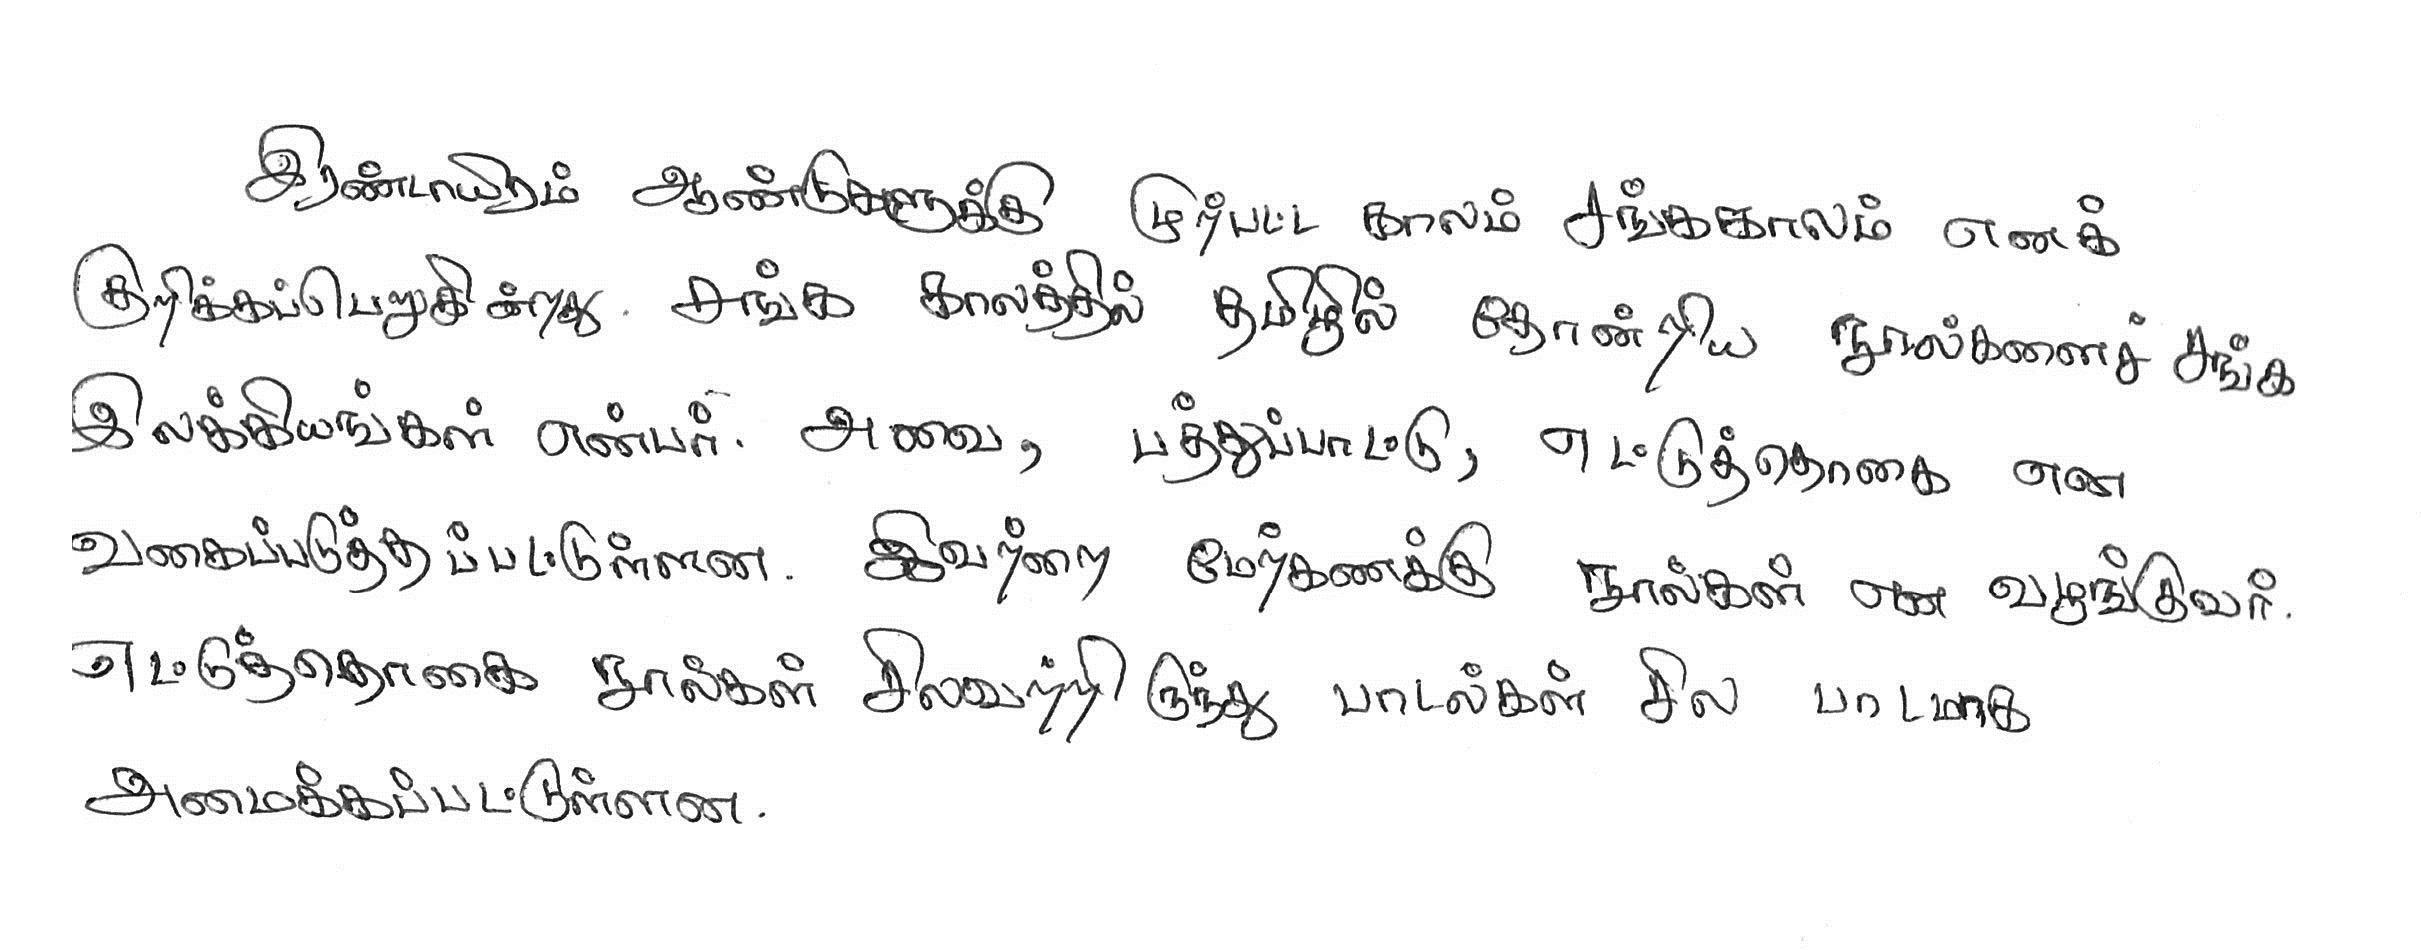 இரண்டாயிரம் ஆண்டுகளுக்கு முற்பட்ட காலம் சங்ககாலம் எனக்
குறிக்கப்பெறுகின்றது. சங்க காலத்தில் தமிழில் தோன்றிய நூல்களைச் சங்க
இலக்கியங்கள் என்பர். அவை, பத்துப்பாட்டு, எட்டுத்தொகை என
வகைப்படுத்தப்பட்டுள்ளன. இவற்றை மேற்கணக்கு நூல்கள் என வழங்குவர்.
எட்டுத்தொகை நூல்கள் சிலவற்றிருந்து பாடல்கள் சில பாடமாக
அமைக்கப்பட்டுள்ளன.